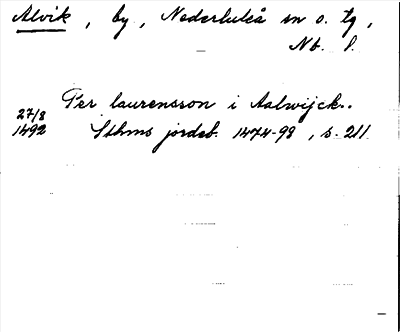 Alvik, by, Nederluleå sn o. tg,
Nb. l.
Per laurensson i Aalwijck..
27/8
1492 Sthms jordeb. 1474-98, s. 211.